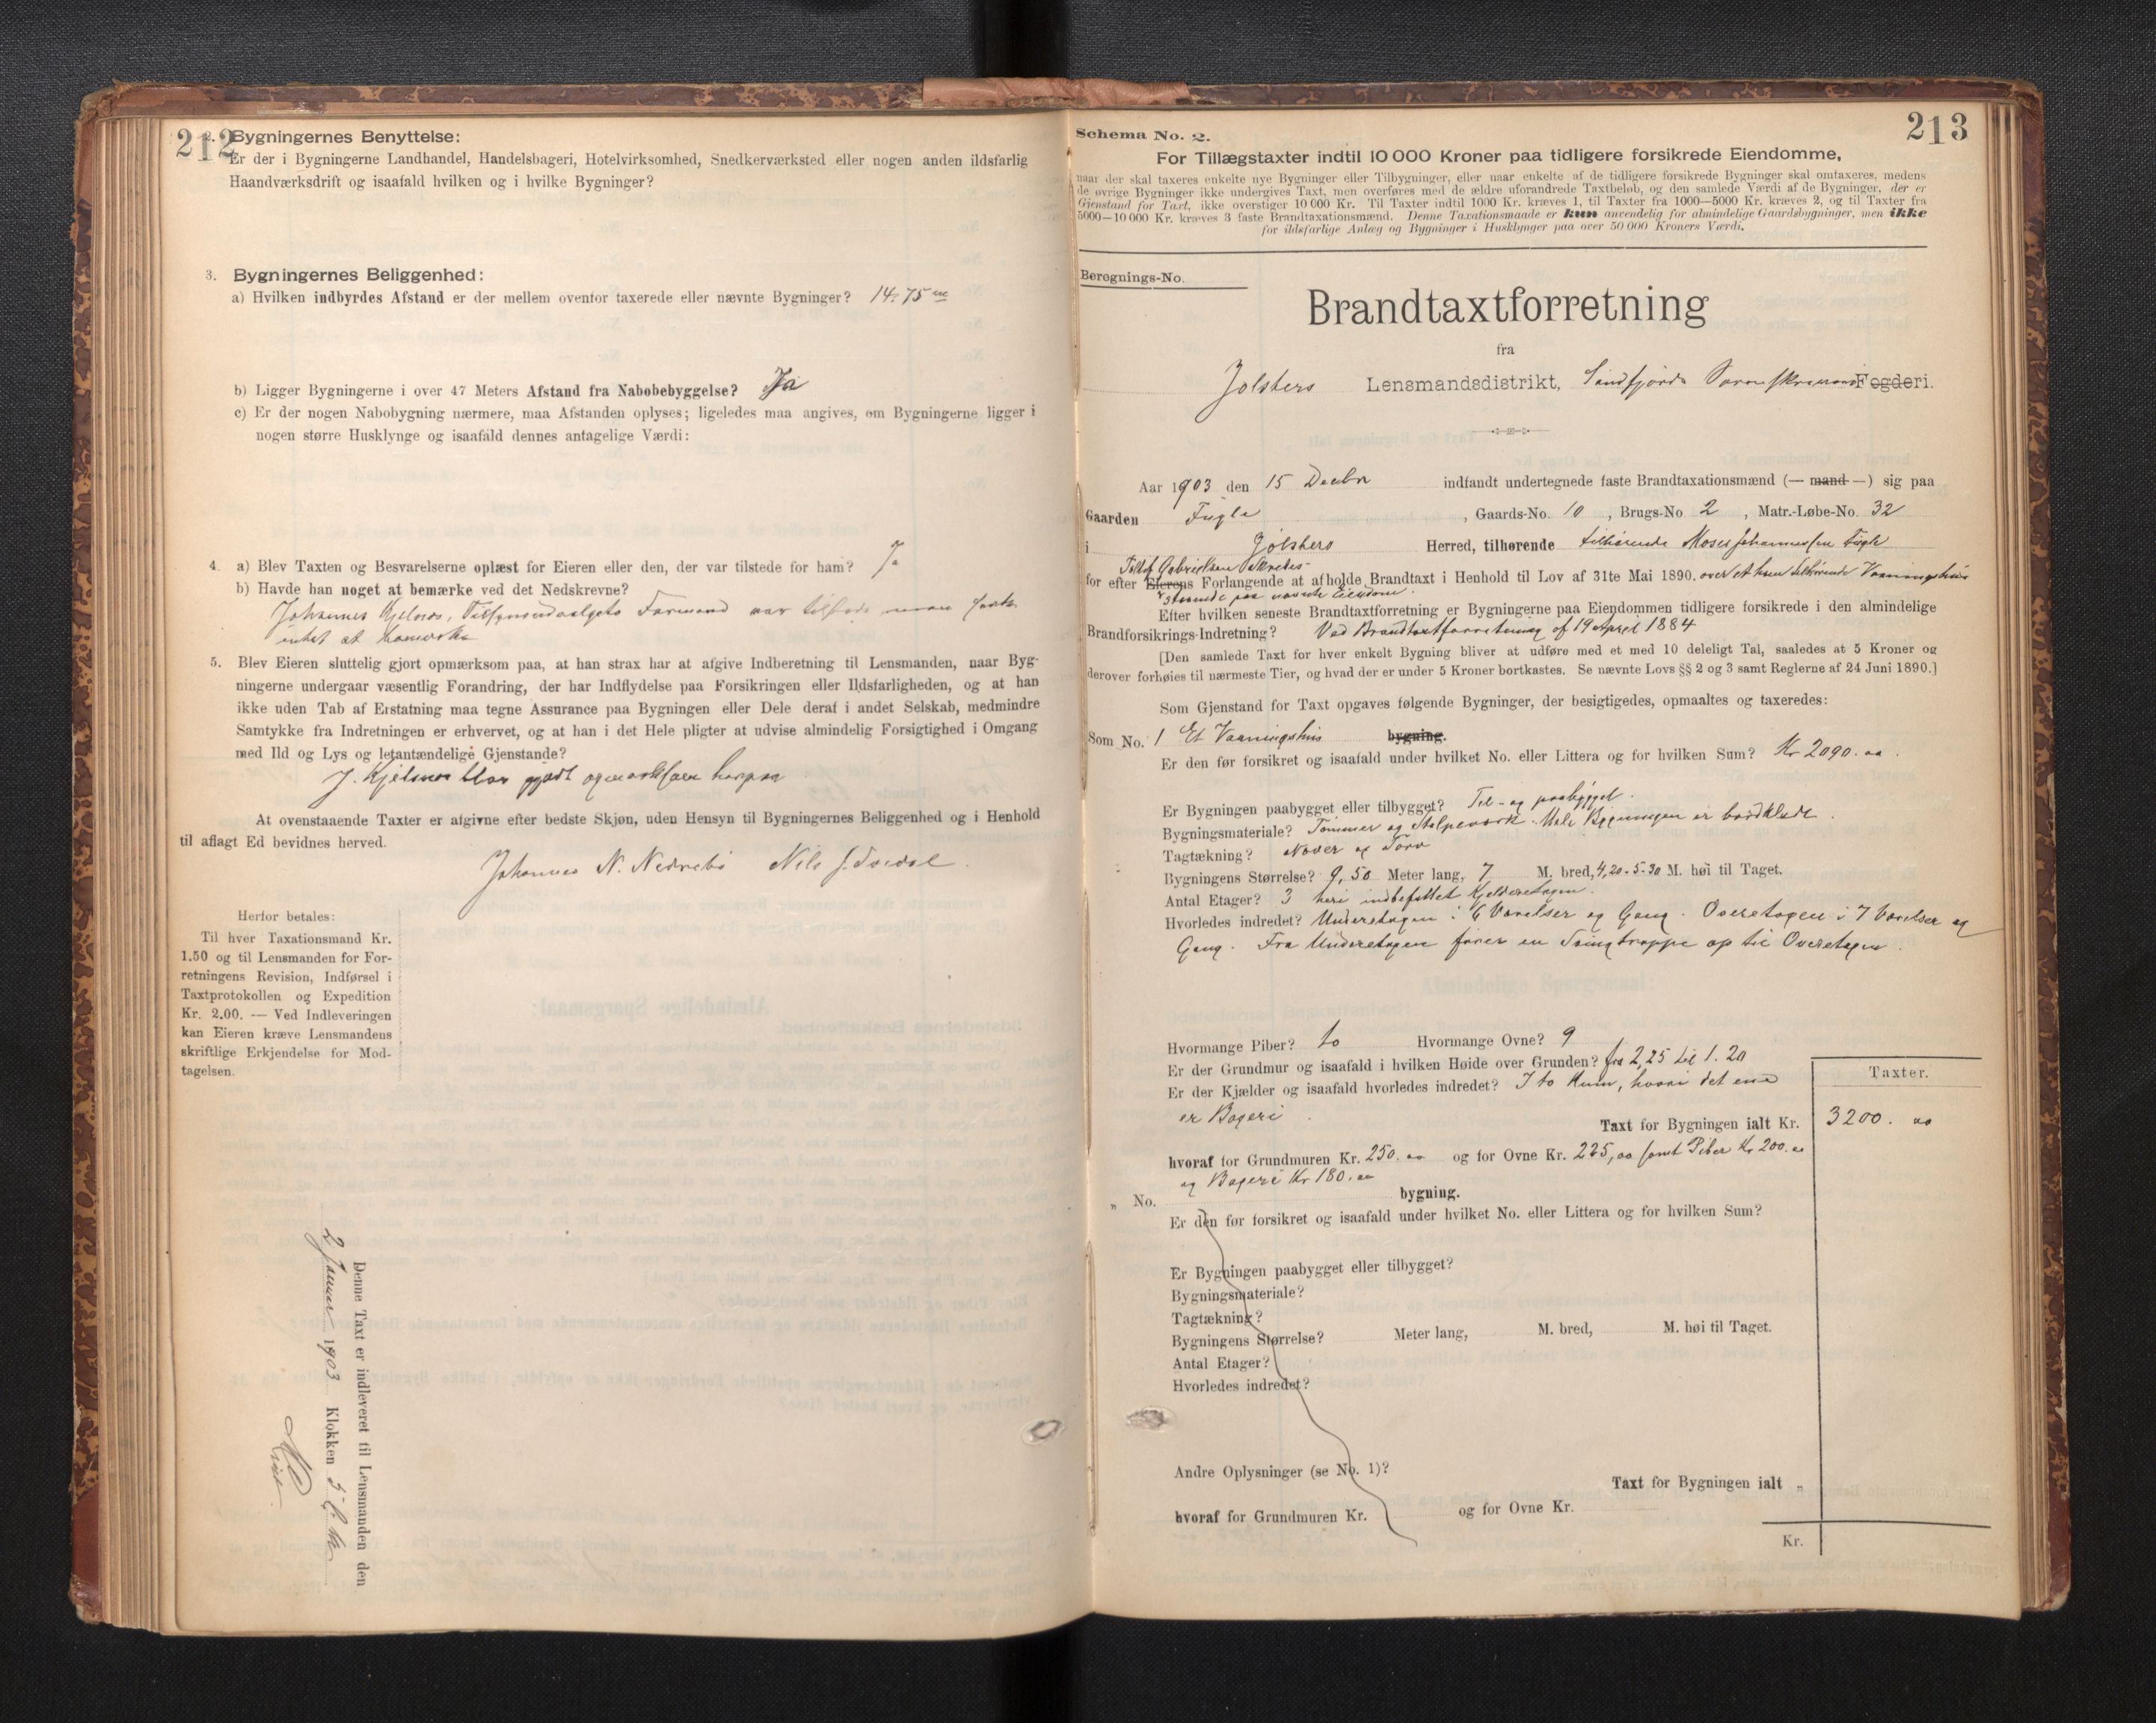 212
2. Bygningernes Benyttelse:
Er der i Bygningerne Landhandel, Handelsbageri, Hotelvirksomhed, Snedkerværksted eller nogen anden ildsfarlig
Haandværksdrift og isaafald hvilken og i hvilke Bygninger?
3. Bygningernes Beliggenhed:
a) Hvilken indbyrdes Afstand er der mellem ovenfor taxerede eller nævnte Bygninger? 14.75 m
b) Ligger Bygningerne i over 47 Meters Afstand fra Nabobebyggelse? Ja
c) Er der nogen Nabobygning nærmere, maa Afstanden oplyses; ligeledes maa angives, om Bygningerne ligger i
nogen større Husklynge og isaafald dennes antagelige Værdi:
4. a) Blev Taxten og Besvarelserne oplæst for Eieren eller den, der var tilstede for ham? Ja
b) Havde han noget at bemærke ved det Nedskrevne?
Johannes Kjelnes, Tilsynsudvalgets Formand var tilstede men havde
intet at bemærke
5. Blev Eieren sluttelig gjort opmærksom paa, at han strax har at afgive Indberetning til Lensmanden, naar Byg-
ningerne undergaar væsentlig Forandring, der har Indflydelse paa Forsikringen eller Ildsfarligheden, og at han
ikke uden Tab af Erstatning maa tegne Assurance paa Bygningen eller Dele deraf i andet Selskab, medmindre
Samtykke fra Indretningen er erhvervet, og at han i det Hele pligter at udvise almindelig Forsigtighed i Omgang
med Ild og Lys og letantændelige Gjenstande?
J. Kjelnes blev gjort opmærksom herpaa
At ovenstaaende Taxter er afgivne efter bedste Skjøn, uden Hensyn til Bygningernes Beliggenhed og i Henhold
til aflagt Ed bevidnes herved.
Johannes N. Nedrebø Nils J. Svidal
Herfor betales:
Til hver Taxationsmand Kr.
1.50 og til Lensmanden for For-
retningens Revision, Indførsel i
Taxtprotokollen og Expedition
Kr. 2.00. — Ved Indleveringen
kan Eieren kræve Lensmandens
skriftlige Erkjendelse for Mod-
tagelsen.
Denne Taxt er indleveret til Lensmanden den
2 Januar 1903 Klokken 5
213
Schema No. 2.
For Tillægstaxter indtil 10 000 Kroner paa tidligere forsikrede Eiendomme,
naar der skal taxeres enkelte nye Bygninger eller Tilbygninger, eller naar enkelte af de tidligere forsikrede Bygninger skal omtaxeres, medens
de øvrige Bygninger ikke undergives Taxt, men overføres med de ældre uforandrede Taxtbeløb, og den samlede Værdi af de Bygninger, der er
Gjenstand for Taxt, ikke overstiger 10 000 Kr. Til Taxter indtil 1000 Kr. kræves 1, til Taxter fra 1000—5000 Kr. kræves 2, og til Taxter fra
5000—10 000 Kr. kræves 3 faste Brandtaxationsmænd. Denne Taxationsmaade er kun anvendelig for almindelige Gaardsbygninger, men ikke
for ildsfarlige Anlæg og Bygninger i Husklynger paa over 50 000 Kroners Værdi.
Beregnings-No.
Brandtaxtforretning
fra
Jølsters Lensmandsdistrikt, Søndfjords Sorenskriveri Fogderi.
Aar 1903 den 15 Decbr indfandt undertegnede faste Brandtaxationsmænd (— mand —) sig paa
Gaarden Fugle, Gaards-No. 10, Brugs-No. 2, Matr.-Løbe-No. 32
i Jølsters Herred, tilhørende tilhørende Moses Johannessen Fugle
Gabrielsen
for efter Eierens Forlangende at afholde Brandtaxt i Henhold til Lov af 31te Mai 1890. over et ham tilhørende Vaaningshus
staaende paa nævnte Eiendom.
Efter hvilken seneste Brandtaxtforretning er Bygningerne paa Eiendommen tidligere forsikrede i den almindelige
Brandforsikrings-Indretning? Ved Brandtaxtforretning af 19 April 1884
[Den samlede Taxt for hver enkelt Bygning bliver at udføre med et med 10 deleligt Tal, saaledes at 5 Kroner og
derover forhøies til nærmeste Tier, og hvad der er under 5 Kroner bortkastes. Se nævnte Lovs §§ 2 og 3 samt Reglerne af 24 Juni 1890.]
Som Gjenstand for Taxt opgaves følgende Bygninger, der besigtigedes, opmaaltes og taxeredes:
Som No. 1 Et Vaaningshus bygning.
Er den før forsikret og isaafald under hvilket No. eller Littera og for hvilken Sum? Kr 2090.00.
Er Bygningen paabygget eller tilbygget? Til- og paabygget.
Bygningsmateriale? Tømmer og Stolpeværk. Hele Bygningen er bordklædt.
Tagtækning? Næver og Torv
Bygningens Størrelse? 9,50 Meter lang, 7 M. bred, 4,20-5-30 M. høi til Taget.
Antal Etager? 3 heri indbefattet Kjelderetagen.
Hvorledes indredet? Underetagen i 6 Værelser og Gang. Overetagen i 7 Værelser og
Gang. Fra Underetagen fører en Svingtrappe op til Overetagen.
Hvormange Piber? to Hvormange Ovne? 9
Er der Grundmur og isaafald i hvilken Høide over Grunden? fra 2,25 til 1.20
Er der Kjælder og isaafald hvorledes indredet? I to Rum, hvori det ene
er Bageri.
Taxter.
Taxt for Bygningen ialt Kr. 3200.00
hvoraf for Grundmuren Kr. 250.00 og for Ovne Kr. 225,00 samt Piber Kr 200.00
og Bageri Kr 180.00
„ No. bygning.
Er den før forsikret og isaafald under hvilket No. eller Littera og for hvilken Sum?
Er Bygningen paabygget eller tilbygget?
Bygningsmateriale?
Tagtækning?
Bygningens Størrelse? Meter lang, M. bred, M. høi til Taget.
Antal Etager?
Hvorledes indredet?
Andre Oplysninger (se No. 1)?
Taxt for Bygningen ialt „
hvoraf for Grundmuren Kr. og for Ovne Kr.
Kr.